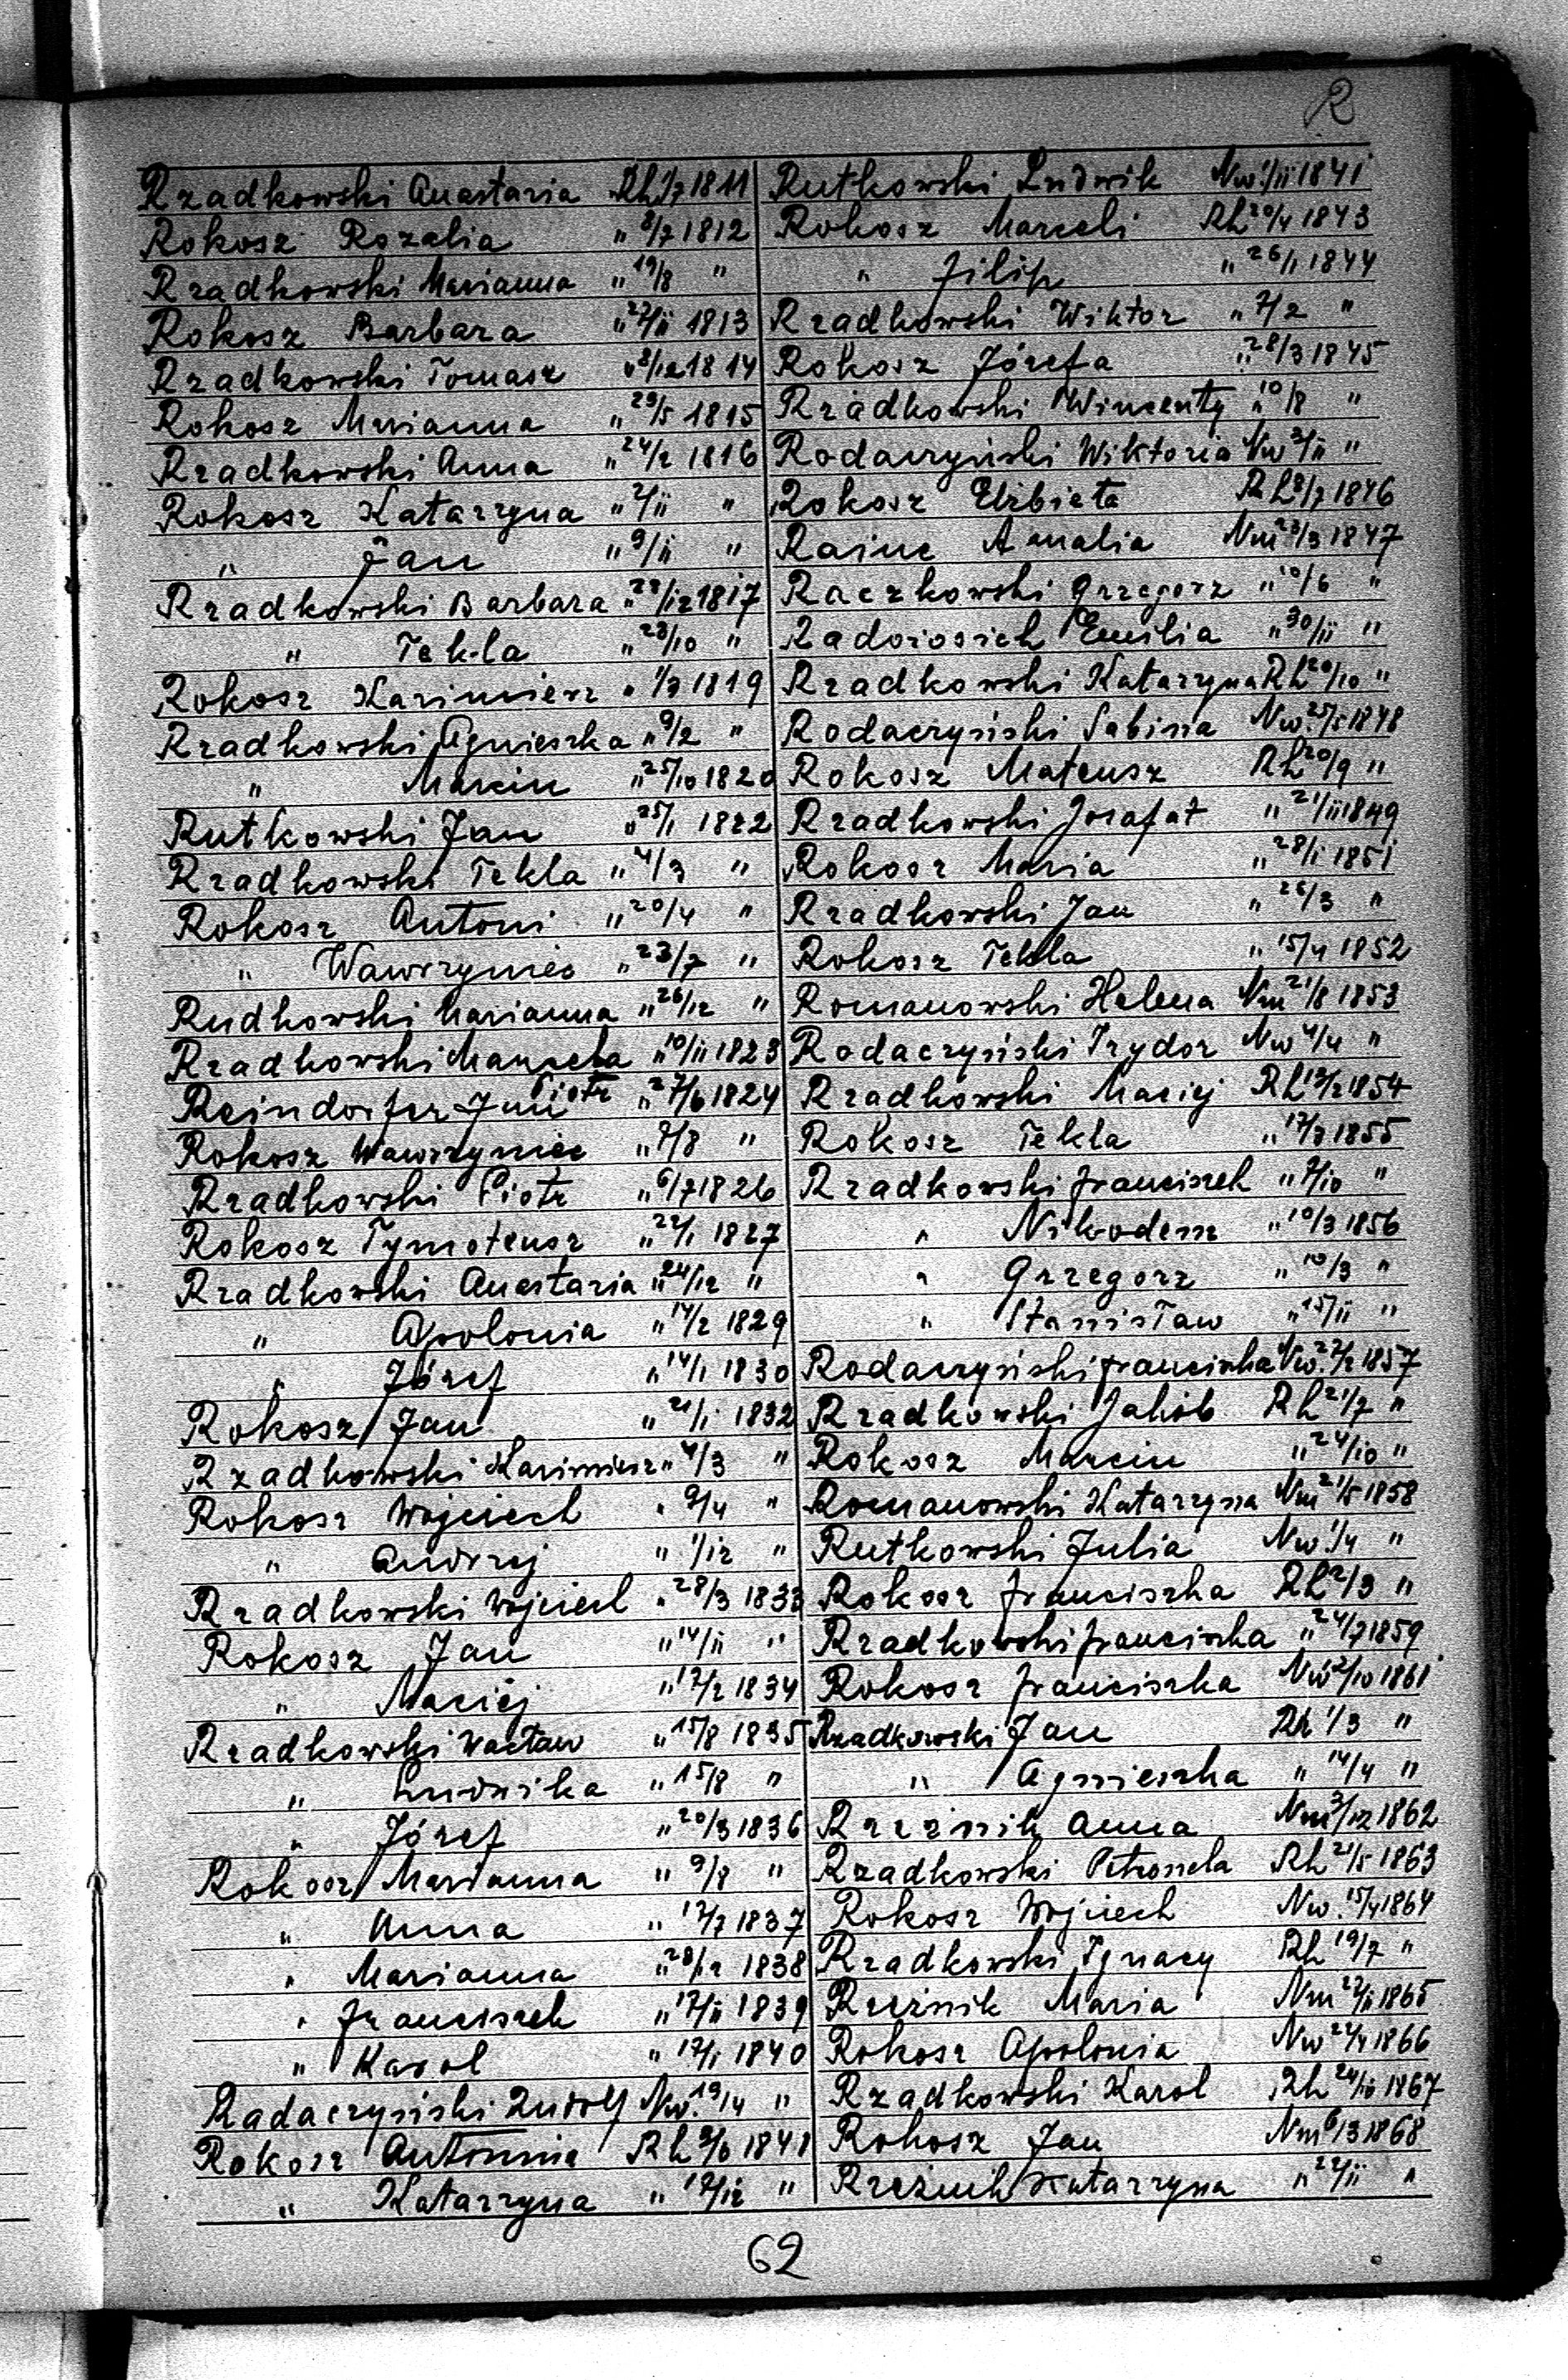 R
Rzadkowski Anastazia Rh 1/7 1811
Rokosz Rozalia " 8/7 1812
Rzadkowski Marianna " 19/8 "
Rokosz Barbara " 27/11 1813
Rzadkowski Tomasz " 8/12 1814
Rokosz Marianna " 29/5 1815
Rzadkowski Anna " 24/2 1816
Rokosz Katarzyna " 2/11 "
" Jan " 9/11 "
Rzadkowski Barbara " 28/12 1817
" Tekla " 23/10 "
Rokosz Kazimierz " 1/3 1819
Rzadkowski Agnieszka " 9/2 "
" Marcin " 25/10 1820
Rutkowski Jan " 25/1 1822
Rzadkowski Tekla " 4/3 "
Rokosz Antoni " 20/4 "
" Wawrzyniec " 23/7 "
Rudkowski Marianna " 26/12 "
Rzadkowski Manswela " 10/11 1823
Reindorfer Jan Piotr " 27/6 1824
Rokosz Wawrzyniec " 7/8 "
Rzadkowski Piotr " 6/7 1826
Rokosz Tymoteusz " 22/1 1827
Rzadkowski Anastazia " 24/12 "
" Apolonia " 14/2 1829
" Józef " 14/1 1830
Rokosz Jan " 21/1 1832
Rzadkowski Kazimierz " 4/3 "
Rokosz Wojciech " 9/4 "
" Andrzej " 1/12 "
Rzadkowski Wojciech " 28/3 1833
Rokosz Jan " 14/11 "
" Maciej " 17/2 1834
Rzadkowski Wacław " 15/8 1835
" Ludwika " 15/8 "
" Józef " 20/3 1836
Rokosz Marianna " 9/8 "
" Anna " 17/7 1837
" Marianna " 28/12 1838
" Franciszek " 17/11 1839
" Karol " 17/1 1840
Radaczyński Rudolf Nw. 19/4 "
Rokosz Antonina Rh 3/6 1841
" Katarzyna " 17/12 "
Rutkowski Ludwik Nw. 1/11 1841
Rokosz Marceli Rh 20/4 1843
" Filip " 26/1 1844
Rzadkowski Wiktor " 7/2 "
Rokosz Józefa " 28/3 1845
Rzadkowski Wincenty " 10/8 "
Rodaczyński Wiktoria Nw 3/11 "
Rokosz Elżbieta Rh 8/7 1846
Raine Amalia Nm 23/3 1847
Raczkowski Grzegorz " 10/6 "
Emilia " 30/11 "
Rzadkowski Katarzyna Rh 20/10 "
Rodaczyński Sabina Nw. 25/5 1848
Rokosz Mateusz Rh 20/9 "
Rzadkowski Jozafat " 21/11 1849
Rokosz Maria " 28/1 1851
Rzadkowski Jan " 26/3 "
Rokosz Tekla " 15/4 1852
Romanowski Helena Nm 21/8 1853
Rodaczyński Izydor Nw 4/4 "
Rzadkowski Maciej Rh 12/2 1854
Rokosz Tekla " 17/3 1855
Rzadkowski Franciszek " 7/10 "
" Nikodem " 10/3 1856
" Grzegorz " 10/3 "
" Stanisław " 15/11 "
Rodaczyński Franciszka Nw. 22/2 1857
Rzadkowski Jakób Rh 21/7 "
Rokosz Marcin " 24/10 "
Romanowski Katarzyna Nm 21/5 1858
Rutkowski Julia Nw. 1/4 "
Rokosz Franciszka Rh 2/3 "
Rzadkowski Franciszka " 24/7 1859
Rokosz Franciszka Nw 2/10 1861
Rzadkowski Jan Rh 1/3 "
" Agnieszka " 14/4 "
Rzeźnik Anna Nm 3/12 1862
Rzadkowski Petronela Rh 21/5 1863
Rokosz Wojciech Nw. 15/4 1864
Rzadkowski Ignacy Rh 19/7 "
Rzeźnik Maria Nm 27/11 1865
Rokosz Apolonia Nw 22/4 1866
Rzadkowski Karol Rh 24/10 1867
Rokosz Jan Nm 6/3 1868
Rzeźnik Katarzyna " 22/11 "
62